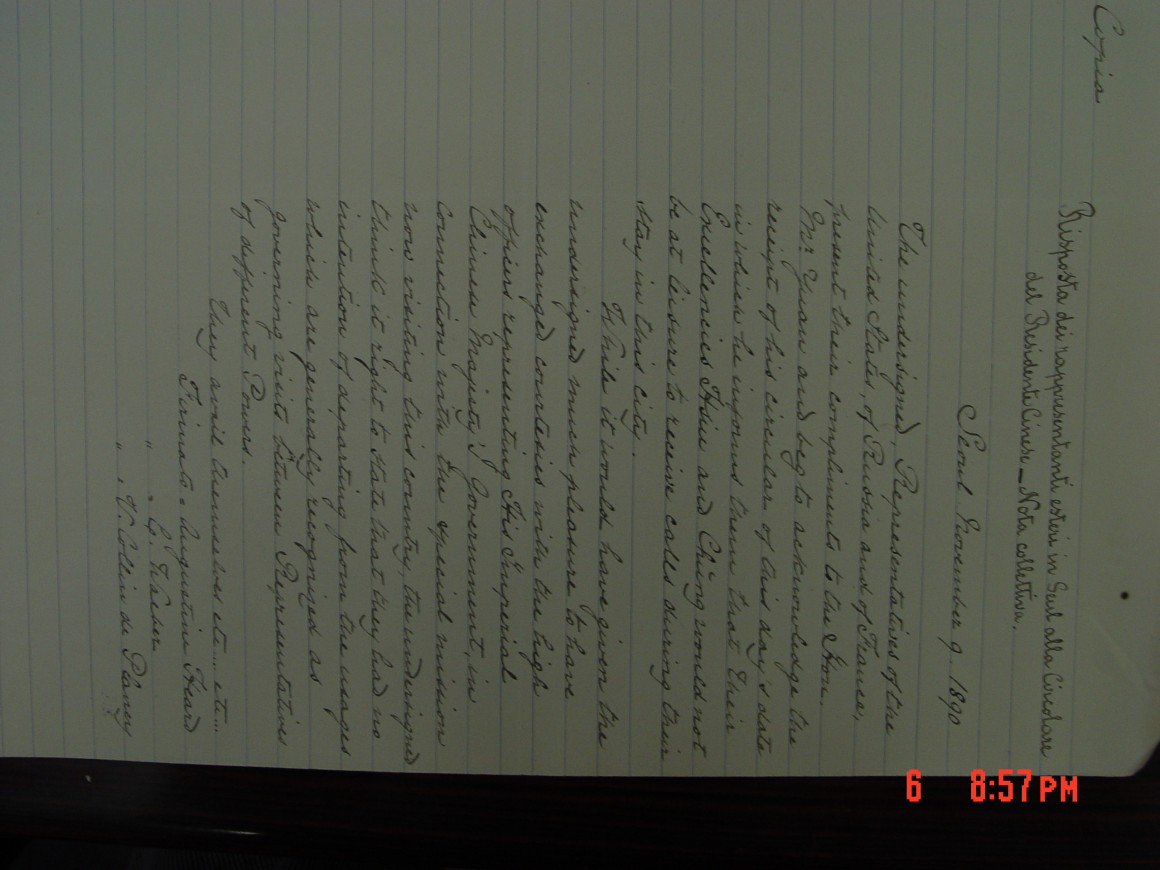 Copia
Risposta dei rappresentanti esteri in Seul alla Circolare
del Presidente Cinese _ Nota collettiva.
Seoul November 9. 1890
The undersigned, Representatives of the
United States, of Russia and of France,
present their compliments to the Hon.
Mr Yuan and beg to acknowledge the
receipt of his circular of this day's date
in which he informs them that Their
Excellencies Hsü and Chüng would not
be at leisure to receive calls during their
stay in this city.
While it would have given the
undersigned much pleasure to have
exchanged courtesies with the high
officers representing His Imperial
Chinese Majesty's Government, in
connection with the special mission
now visiting this country, the undersigned
think it right to state that they had no
intention of departing from the usages
which are generally recognized as
governing visits between Representatives
of different Powers.
They avail themselves etc... etc...
Firmato: Augustin Heard
" " C. Waeber
" " V. Collin de Plancy
6 8:57 PM